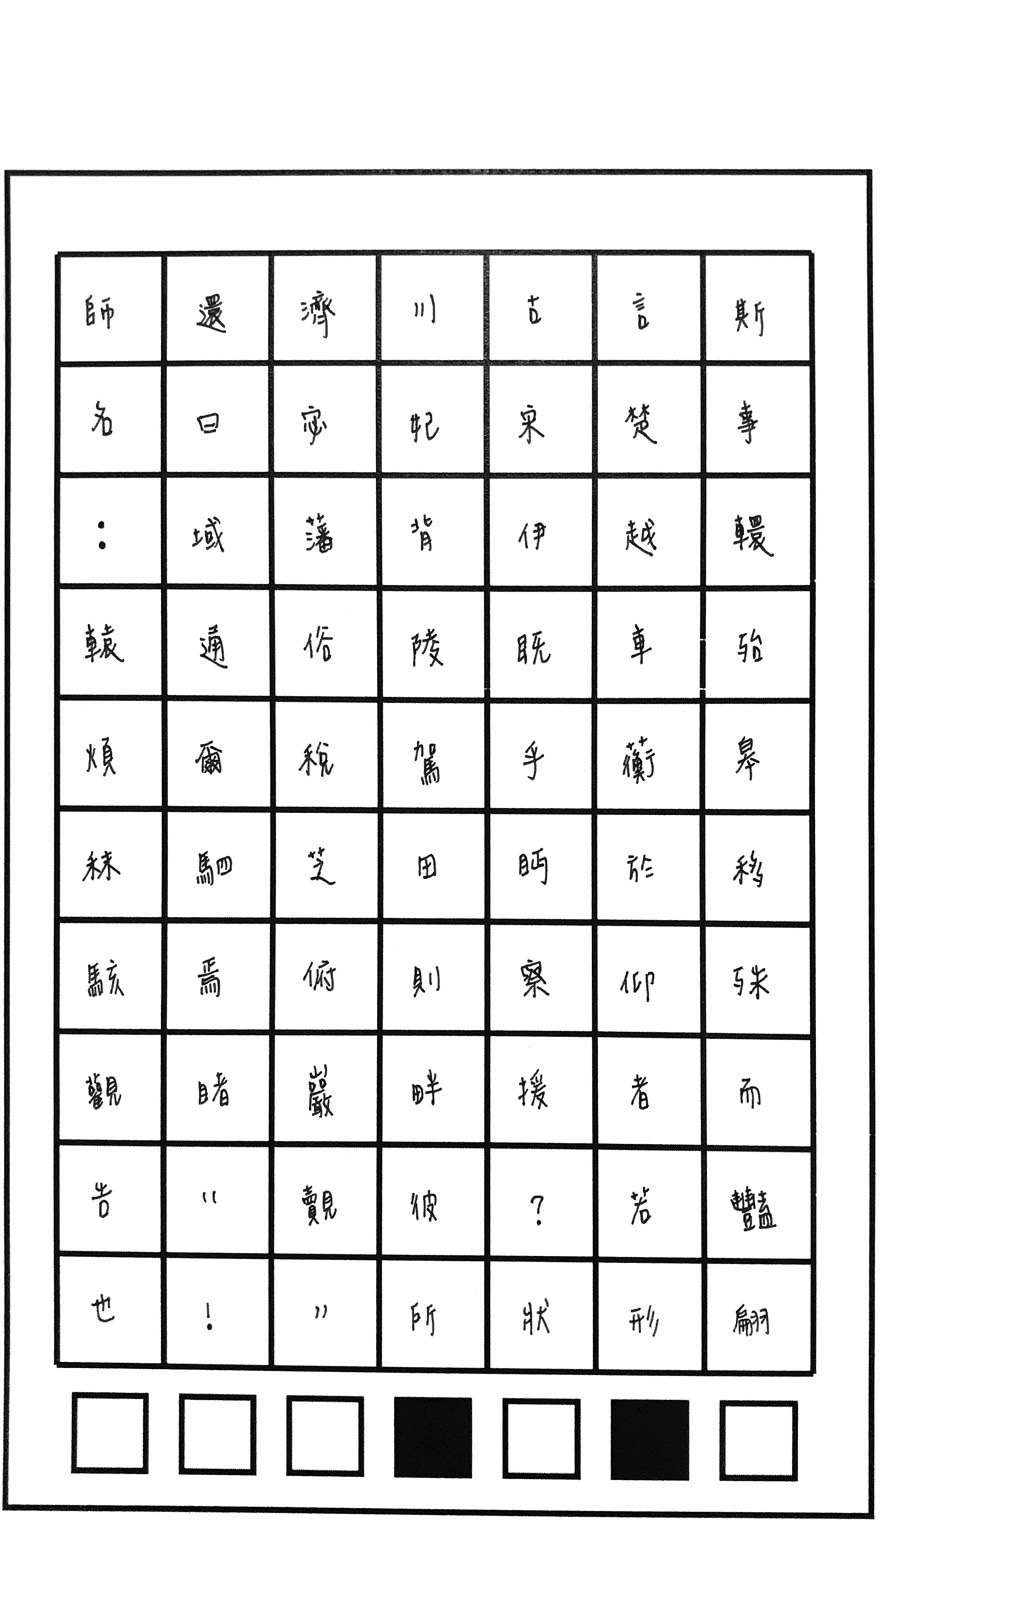 師還濟川古言斯
名曰宓妃宋楚事
：域藩背伊越轘
轅通俗陵既車殆
煩爾稅駕乎蘅皋
秣駟芝田眄於移
駭焉俯則察仰殊
觀睹巖畔援者而
告“覿彼？若豔
也！”所狀形翩